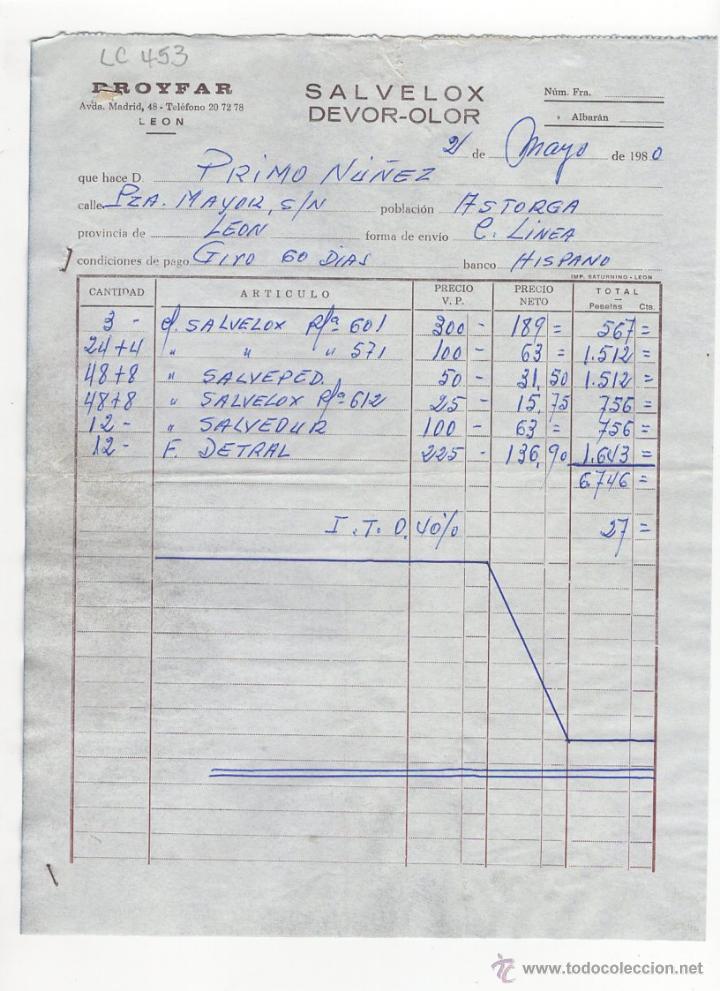 LC 453
PROYFAR
Avda. Madrid, 48 - Teléfono 20 72 78
LEON
SALVELOX
DEVOR-OLOR
Núm. Fra.
Albarán
21 de Mayo de 1980
que hace D. PRIMO NÚÑEZ
calle PZA. MAYOR, S/N población ASTORGA
provincia de LEON forma de envío C. LINEA
condiciones de pago GIRO 60 DIAS banco HISPANO
IMP. SATURNINO - LEON
CANTIDAD ARTICULO PRECIO V. P. PRECIO NETO TOTAL Pesetas Cts.
3 - SALVELOX Rfª 601 300 - 189 = 567 =
24+4 " " " 571 100 - 63 = 1.512 =
48+8 " SALVEPED. 50 - 31,50 1.512 =
48+8 " SALVELOX Rfª 612 25 - 15,75 756 =
12 - " SALVEDUR 100 - 63 = 756 =
12 - F. DETRAL 225 - 136,90 1.643 =
6.746 =
I.T.E. 40% 27 =
www.todocoleccion.net